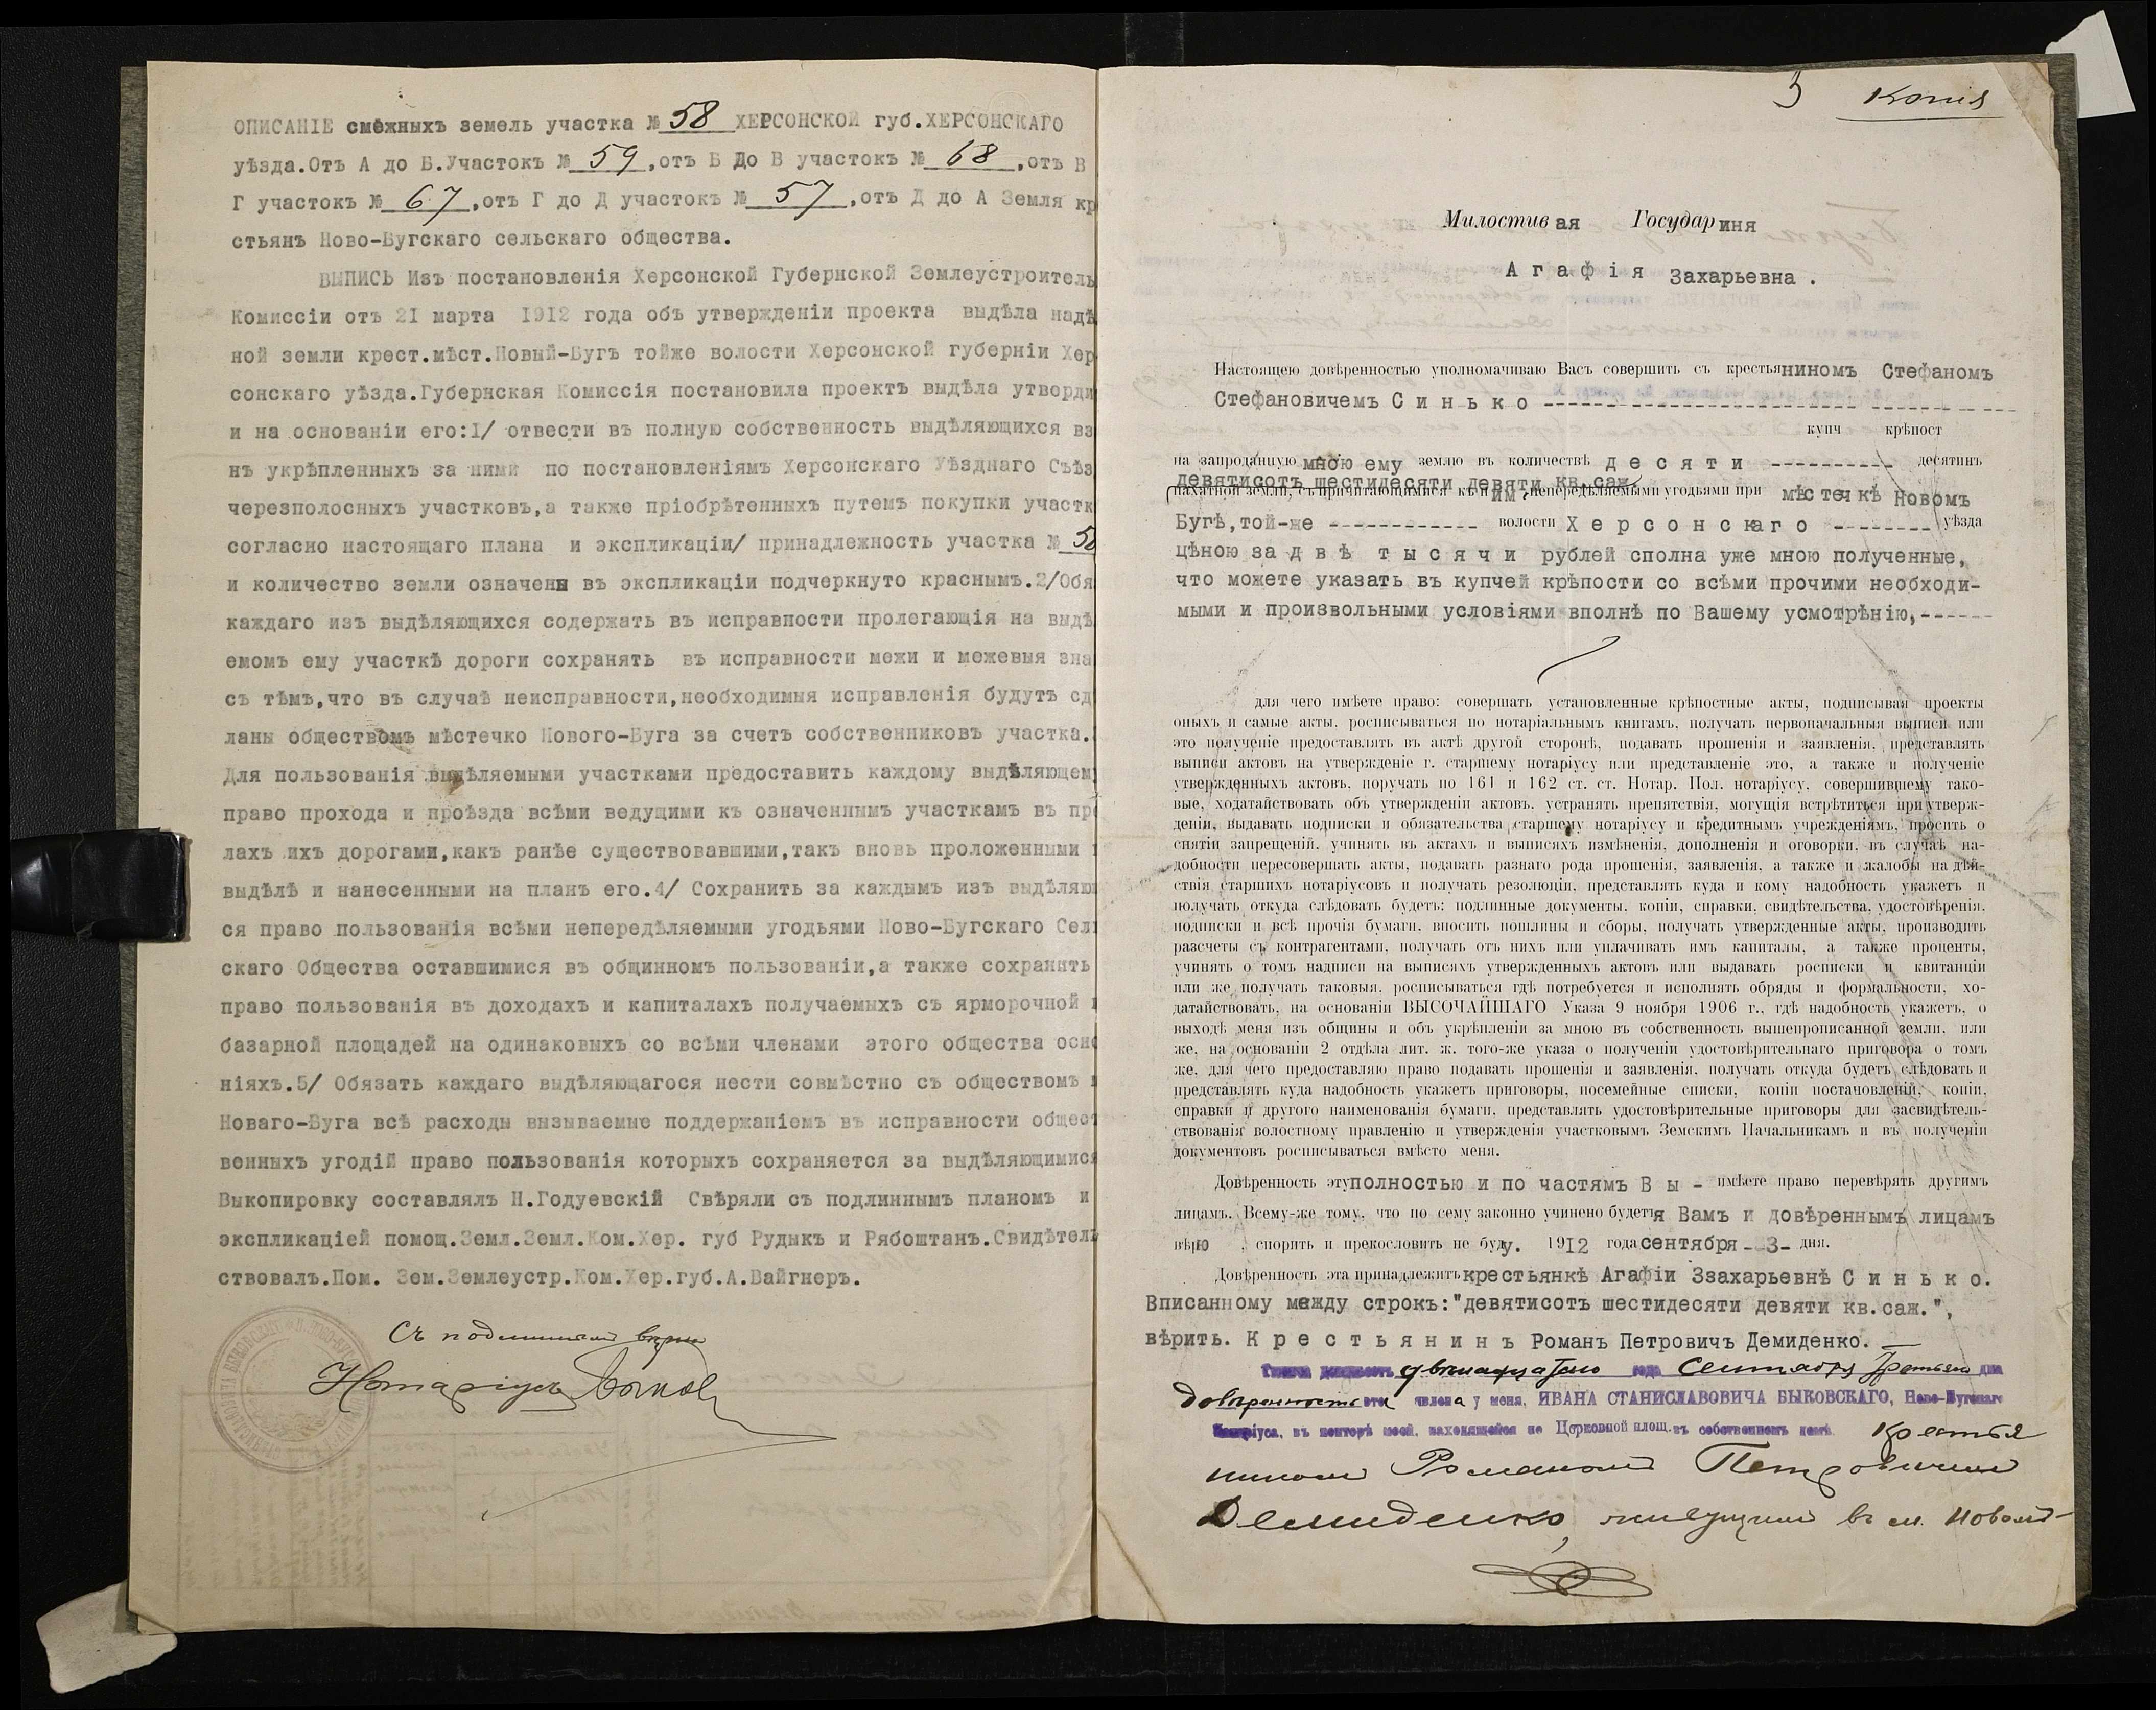 ОПИСАНІЕ смежныхъ земель участка № 58 ХЕРСОНСКОЙ губ.ХЕРСОНСКАГО
уѣзда.Отъ А до Б.Участокъ № 59 ,отъ Б До В участокъ № 68 ,отъ В
Г участокъ № 67 ,отъ Г до Д участокъ № 57 ,отъ Д до А Земля кр
стьянъ Ново-Бугскаго сельскаго общества.
ВЫПИСЬ Изъ постановленія Херсонской Губернской Землеустроитель
Комиссіи отъ 21 марта 1912 года объ утвержденіи проекта выдѣла надѣ
ной земли крест.мѣст.Новый-Бугъ тойже волости Херсонской губерніи Хер
сонскаго уѣзда.Губернская Комиссія постановила проектъ выдѣла утверди
и на основаніи его:I/ отвести въ полную собственность выдѣляющихся вз
нъ укрѣпленныхъ за ними по постановленіямъ Херсонскаго Уѣзднаго Съѣз
черезполосныхъ участковъ,а также пріобрѣтенныхъ путемъ покупки участк
согласно настоящаго плана и экспликаціи/ принадлежность участка № 58
и количество земли означены въ экспликаціи подчеркнуто краснымъ.2/Обя
каждаго изъ выдѣляющихся содержать въ исправности пролегающія на выдѣ
емомъ ему участкѣ дороги сохранять въ исправности межи и межевыя зна
съ тѣмъ,что въ случаѣ неисправности,необходимыя исправленія будутъ сд
ланы обществомъ мѣстечко Нового-Буга за счетъ собственниковъ участка.
Для пользованія выдѣляемыми участками предоставить каждому выдѣляющем
право прохода и проѣзда всѣми ведущими къ означеннымъ участкамъ въ пр
лахъ ихъ дорогами,какъ ранѣе существовавшими,такъ вновь проложенными
выдѣлѣ и нанесенными на планъ его.4/ Сохранить за каждымъ изъ выдѣляю
ся право пользованія всѣми непередѣляемыми угодьями Ново-Бугскаго Сел
скаго Общества оставшимися въ общинномъ пользованіи,а также сохранять
право пользованія въ доходахъ и капиталахъ получаемыхъ съ ярморочной
базарной площадей на одинаковыхъ со всѣми членами этого общества осно
ніяхъ.5/ Обязать каждаго выдѣляющагося нести совмѣстно съ обществомъ
Новаго-Буга всѣ расходы вызываемые поддержаніемъ въ исправности общест
венныхъ угодій право пользованія которыхъ сохраняется за выдѣляющимися
Выкопировку составлялъ Н.Годуевскій Свѣряли съ подлиннымъ планомъ и
экспликаціей помощ.Земл.Земл.Ком.Хер. губ Рудыкъ и Рябоштанъ.Свидѣтель
ствовалъ.Пом. Зем.Землеустр.Ком.Хер.губ.А.Вайгнеръ.
Съ подлиннымъ вѣрно
Нотаріусъ Быков
3 Копія
Милостивая Государиня
Агафія Захарьевна .
Настоящею довѣренностью уполномачиваю Васъ совершить съ крестьяниномъ Стефаномъ
Стефановичемъ Синько
купч крѣпост
на запроданную мною ему землю въ количествѣ десяти десятинъ
девятисотъ шестидесяти девяти кв.саж.
пахатной земли, съ причитающимися къ ним непередѣляемыми угодьями при мѣстечкѣ Новомъ
Бугѣ,той-же волости Херсонскаго уѣзда
цѣною за двѣ тысячи рублей сполна уже мною полученные,
что можете указать въ купчей крѣпости со всѣми прочими необходи-
мыми и произвольными условіями вполнѣ по Вашему усмотрѣнію,
для чего имѣете право: совершать установленные крѣпостные акты, подписывая проекты
оныхъ и самые акты, росписываться по нотаріальнымъ книгамъ, получать первоначальныя выписи или
это полученіе предоставлять въ актѣ другой сторонѣ, подавать прошенія и заявленія, представлять
выписи актовъ на утвержденіе г. старшему нотаріусу или представленіе это, а также и полученіе
утвержденныхъ актовъ, поручать по 161 и 162 ст. ст. Нотар. Пол. нотаріусу, совершившему тако-
вые, ходатайствовать объ утвержденіи актовъ, устранять препятствія, могущія встрѣтиться при утверж-
деніи, выдавать подписки и обязательства старшему нотаріусу и кредитнымъ учрежденіямъ, просить о
снятіи запрещеній, учинять въ актахъ и выписяхъ измѣненія, дополненія и оговорки, въ случаѣ на-
добности пересовершать акты, подавать разнаго рода прошенія, заявленія, а также и жалобы на дѣй-
ствія старшихъ нотаріусовъ и получать резолюціи, представлять куда и кому надобность укажетъ и
получать откуда слѣдовать будетъ: подлинные документы, копіи, справки, свидѣтельства, удостовѣренія,
подписки и всѣ прочія бумаги, вносить пошлины и сборы, получать утвержденные акты, производить
разсчеты съ контрагентами, получать отъ нихъ или уплачивать имъ капиталы, а также проценты,
учинять о томъ надписи на выписяхъ утвержденныхъ актовъ или выдавать росписки и квитанціи
или же получать таковыя, росписываться гдѣ потребуется и исполнять обряды и формальности, хо-
датайствовать, на основаніи ВЫСОЧАЙШАГО Указа 9 ноября 1906 г., гдѣ надобность укажетъ, о
выходѣ меня изъ общины и объ укрѣпленіи за мною въ собственность вышепрописанной земли, или
же, на основаніи 2 отдѣла лит. ж. того-же указа о полученіи удостовѣрительнаго приговора о томъ
же, для чего предоставляю право подавать прошенія и заявленія, получать откуда будетъ слѣдовать и
представлять куда надобность укажетъ приговоры, посемейные списки, копіи постановленій, копіи,
справки и другого наименованія бумаги, представлять удостовѣрительные приговоры для засвидѣтель-
ствованія волостному правленію и утвержденія участковымъ Земскимъ Начальникамъ и въ полученіи
документовъ росписываться вмѣсто меня.
Довѣренность эту полностью и по частямъ Вы - имѣете право перевѣрять другимъ
лицамъ. Всему-же тому, что по сему законно учинено будетъ я Вамъ и довѣреннымъ лицамъ
вѣрю , спорить и прекословить не буду. 1912 года сентября -3- дня.
Довѣренность эта принадлежитъ крестьянкѣ Агафіи Ззахарьевнѣ Синько.
Вписанному между строкъ:"девятисотъ шестидесяти девяти кв.саж.",
вѣрить. Крестьянинъ Романъ Петровичъ Демиденко.
Тысяча девятьсотъ двѣнадцатого года Сентября третьяго дня
довѣренность эта явлена у меня, ИВАНА СТАНИСЛАВОВИЧА БЫКОВСКАГО, Ново-Бугскаго
Нотаріуса, въ конторѣ моей, находящейся на Церковной площ. въ собственномъ домѣ, Крестья
ниномъ Романомъ Петровичемъ
Демиденко, живущимъ въ м. Новомъ-